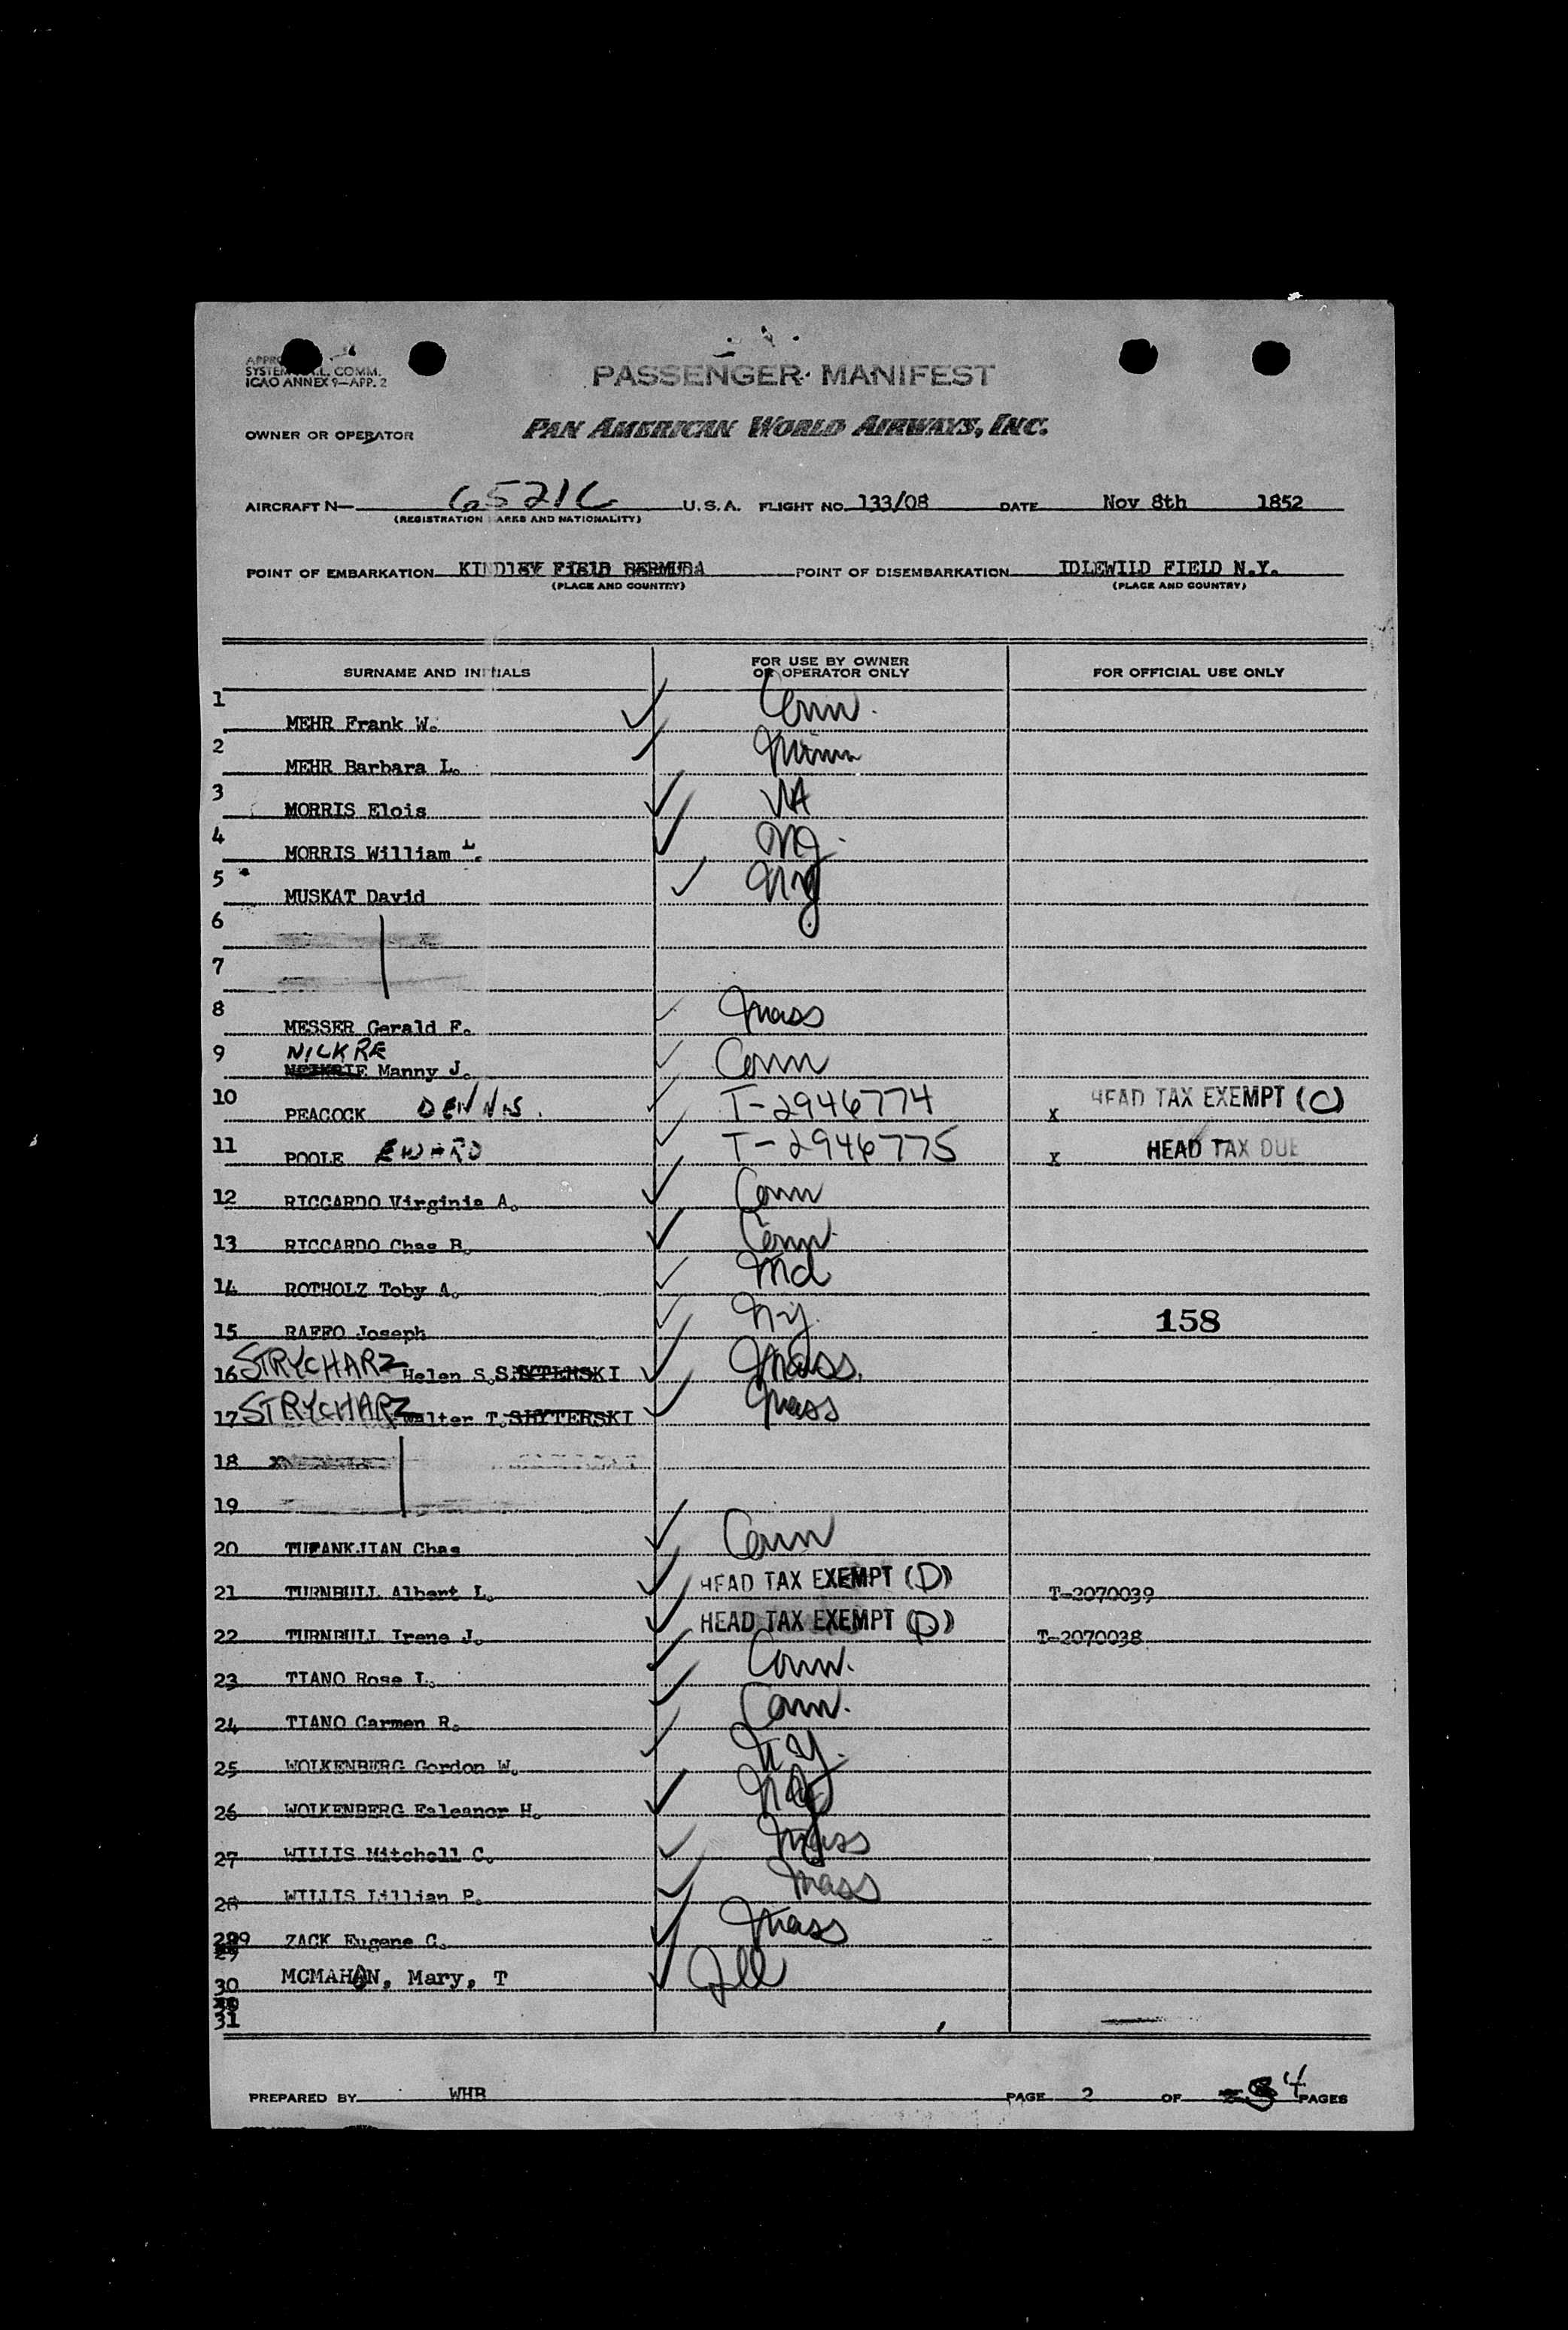 SYSTEM
ICAO ANNEX 9—APP. 2
PASSENGER MANIFEST
OWNER OR OPERATOR PAN AMERICAN WORLD AIRWAYS, INC.
AIRCRAFT N— 65216 U.S.A. FLIGHT NO. 133/08 DATE Nov 8th 1852
(REGISTRATION MARKS AND NATIONALITY)
POINT OF EMBARKATION KINDLEY FIELD BERMUDA POINT OF DISEMBARKATION IDLEWILD FIELD N.Y.
(PLACE AND COUNTRY) (PLACE AND COUNTRY)
SURNAME AND INITIALS FOR USE BY OWNER OR OPERATOR ONLY FOR OFFICIAL USE ONLY
1 MEHR Frank W. Conn.
2 MEHR Barbara L. Minn
3 MORRIS Elois VA
4 MORRIS William L. NJ.
5 MUSKAT David NY
6
7
8 MESSER Gerald F. Mass
9 NICKRE Manny J. Conn
10 PEACOCK DENNIS. T-2946774 x HEAD TAX EXEMPT (C)
11 POOLE EWARD T-2946775 x HEAD TAX DUE
12 RICCARDO Virginia A. Conn
13 RICCARDO Chas B. Conn.
14 ROTHOLZ Toby A. Md
15 RAFFO Joseph N.Y. 158
16 STRYCHARZ Helen S. Mass.
17 STRYCHARZ Walter T. SHYTERSKI Mass
18
19
20 TUFANKJIAN Chas Conn
21 TURNBULL Albert L. HEAD TAX EXEMPT (D) T-2070039
22 TURNBULL Irene J. HEAD TAX EXEMPT (D) T-2070038
23 TIANO Rose L. Conn.
24 TIANO Carmen R. Conn.
25 WOLKENBERG Gordon W. N.Y.
26 WOLKENBERG Ealeanor H. NY
27 WILLIS Mitchell C. Mass
28 WILLIS Lillian P. Mass
29 ZACK Eugene C. Mass
30 MCMAHON, Mary, T Ill
31
PREPARED BY WHB PAGE 2 OF 4 PAGES